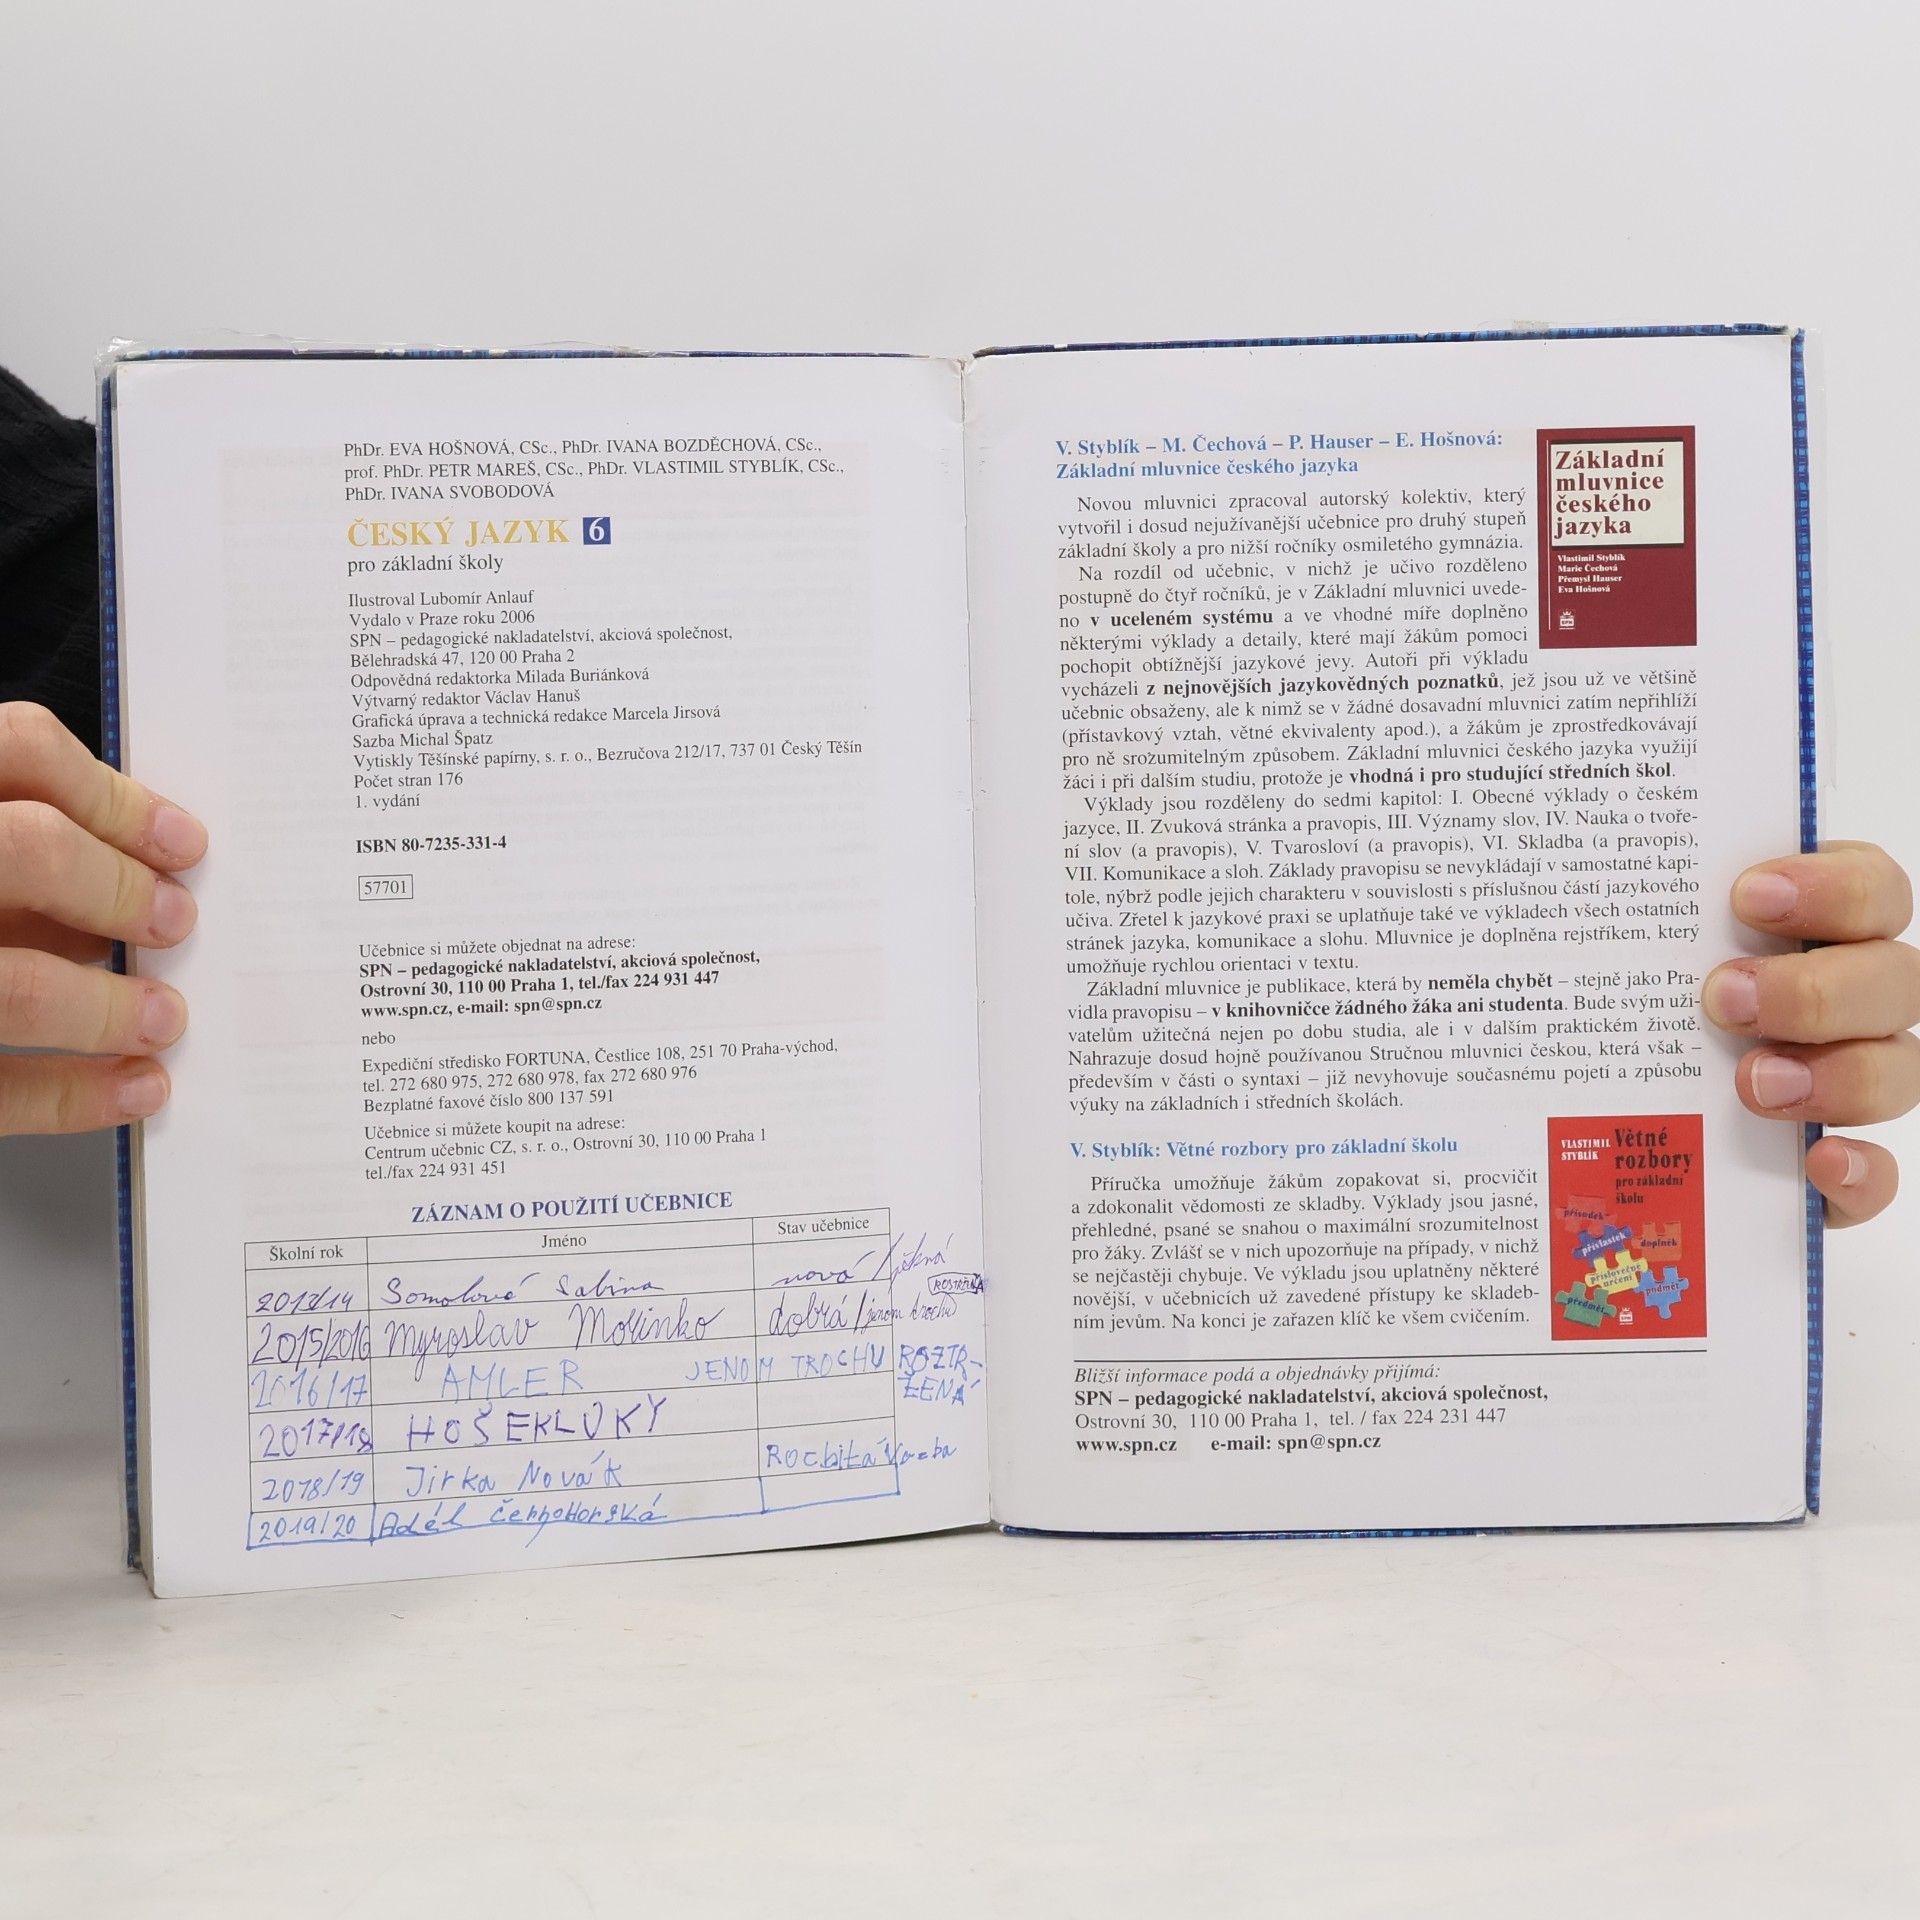 PhDr. EVA HOŠNOVÁ, CSc., PhDr. IVANA BOZDĚCHOVÁ, CSc.,
prof. PhDr. PETR MAREŠ, CSc., PhDr. VLASTIMIL STYBLÍK, CSc.,
PhDr. IVANA SVOBODOVÁ
ČESKÝ JAZYK 6
pro základní školy
Ilustroval Lubomír Anlauf
Vydalo v Praze roku 2006
SPN – pedagogické nakladatelství, akciová společnost,
Bělehradská 47, 120 00 Praha 2
Odpovědná redaktorka Milada Buriánková
Výtvarný redaktor Václav Hanuš
Grafická úprava a technická redakce Marcela Jirsová
Sazba Michal Špatz
Vytiskly Těšínské papírny, s. r. o., Bezručova 212/17, 737 01 Český Těšín
Počet stran 176
1. vydání
ISBN 80-7235-331-4
57701
Učebnice si můžete objednat na adrese:
SPN – pedagogické nakladatelství, akciová společnost,
Ostrovní 30, 110 00 Praha 1, tel./fax 224 931 447
www.spn.cz, e-mail: spn@spn.cz
nebo
Expediční středisko FORTUNA, Čestlice 108, 251 70 Praha-východ,
tel. 272 680 975, 272 680 978, fax 272 680 976
Bezplatné faxové číslo 800 137 591
Učebnice si můžete koupit na adrese:
Centrum učebnic CZ, s. r. o., Ostrovní 30, 110 00 Praha 1
tel./fax 224 931 451
ZÁZNAM O POUŽITÍ UČEBNICE
Školní rok Jméno Stav učebnice
2013/14 Sabina nová / pěkná
2015/2016 Myroslav dobrá / jenom trochu
2016/17 AMLER JENOM TROCHU ROZTR-
ŽENÁ
2017/18 HOŠEK LUKY
2018/19 Jirka Novák Rocbitá Vazba
2019/20 Adél Černohorská
V. Styblík – M. Čechová – P. Hauser – E. Hošnová:
Základní mluvnice českého jazyka
Novou mluvnici zpracoval autorský kolektiv, který
vytvořil i dosud nejužívanější učebnice pro druhý stupeň
základní školy a pro nižší ročníky osmiletého gymnázia.
Na rozdíl od učebnic, v nichž je učivo rozděleno
postupně do čtyř ročníků, je v Základní mluvnici uvede-
no v uceleném systému a ve vhodné míře doplněno
některými výklady a detaily, které mají žákům pomoci
pochopit obtížnější jazykové jevy. Autoři při výkladu
vycházeli z nejnovějších jazykovědných poznatků, jež jsou už ve většině
učebnic obsaženy, ale k nimž se v žádné dosavadní mluvnici zatím nepřihlíží
(přístavkový vztah, větné ekvivalenty apod.), a žákům je zprostředkovávají
pro ně srozumitelným způsobem. Základní mluvnici českého jazyka využijí
žáci i při dalším studiu, protože je vhodná i pro studující středních škol.
Výklady jsou rozděleny do sedmi kapitol: I. Obecné výklady o českém
jazyce, II. Zvuková stránka a pravopis, III. Významy slov, IV. Nauka o tvoře-
ní slov (a pravopis), V. Tvarosloví (a pravopis), VI. Skladba (a pravopis),
VII. Komunikace a sloh. Základy pravopisu se nevykládají v samostatné kapi-
tole, nýbrž podle jejich charakteru v souvislosti s příslušnou částí jazykového
učiva. Zřetel k jazykové praxi se uplatňuje také ve výkladech všech ostatních
stránek jazyka, komunikace a slohu. Mluvnice je doplněna rejstříkem, který
umožňuje rychlou orientaci v textu.
Základní mluvnice je publikace, která by neměla chybět – stejně jako Pra-
vidla pravopisu – v knihovničce žádného žáka ani studenta. Bude svým uži-
vatelům užitečná nejen po dobu studia, ale i v dalším praktickém životě.
Nahrazuje dosud hojně používanou Stručnou mluvnici českou, která však –
především v části o syntaxi – již nevyhovuje současnému pojetí a způsobu
výuky na základních i středních školách.
Základní
mluvnice
českého
jazyka
Vlastimil Styblík
Marie Čechová
Přemysl Hauser
Eva Hošnová
SPN
V. Styblík: Větné rozbory pro základní školu
Příručka umožňuje žákům zopakovat si, procvičit
a zdokonalit vědomosti ze skladby. Výklady jsou jasné,
přehledné, psané se snahou o maximální srozumitelnost
pro žáky. Zvlášť se v nich upozorňuje na případy, v nichž
se nejčastěji chybuje. Ve výkladu jsou uplatněny některé
novější, v učebnicích už zavedené přístupy ke skladeb-
ním jevům. Na konci je zařazen klíč ke všem cvičením.
VLASTIMIL
STYBLÍK
Větné
rozbory
pro základní
školu
přísudek
přívlastek
doplněk
příslovečné
určení
podmět
předmět
Bližší informace podá a objednávky přijímá:
SPN – pedagogické nakladatelství, akciová společnost,
Ostrovní 30, 110 00 Praha 1, tel. / fax 224 231 447
www.spn.cz e-mail: spn@spn.cz